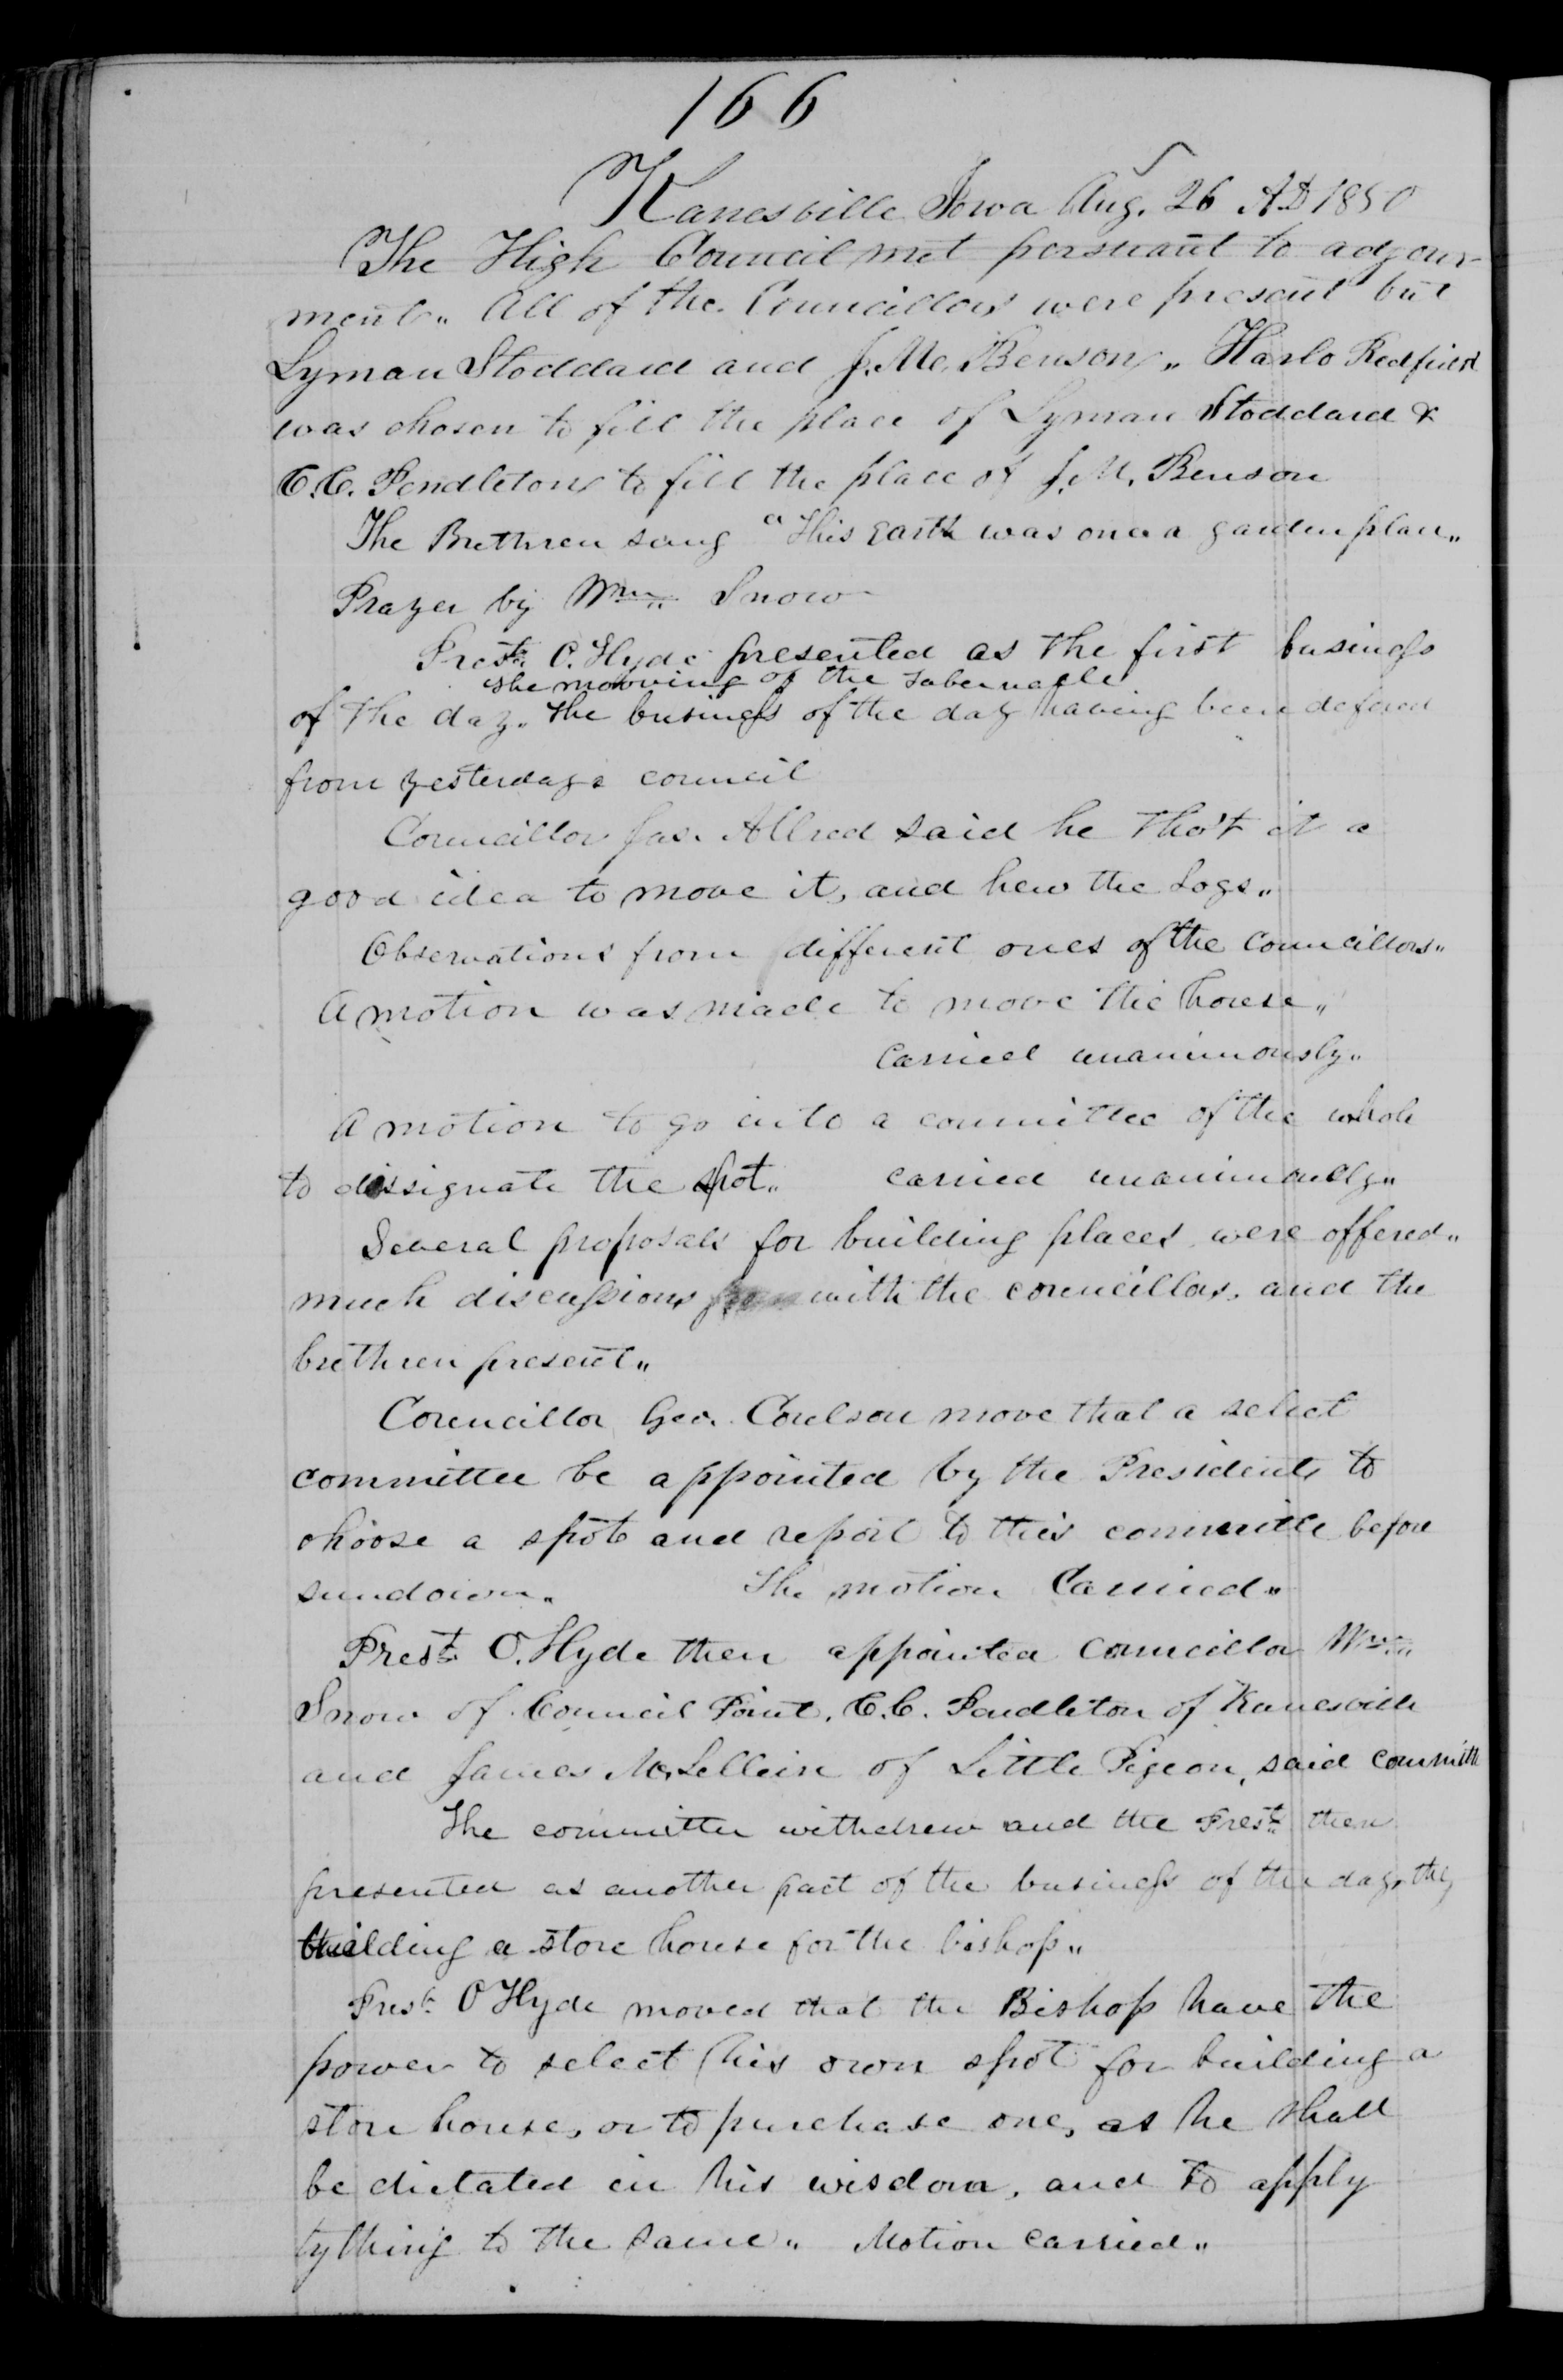 166
Kanesville Iowa Aug. 26 A.D 1850
The High Council met persuant to adjour-
ment„ All of the Councillors were present but
Lyman Stoddard and J. M. Benson„ Harlo Redfield
was chosen to fill the place of Lyman Stoddard &
C.C. Pendleton to fill the place of J. M. Benson
The Brethren sung "This earth was once a garden place„
Prayer by Wm„ Snow
Prest. O. Hyde presented as the first business
the mooving of the Tabernacle
of the day. the business of the day having been defered
from yesterdays council
Councillor Jas. Allred said he tho't it a
good idea to move it, and hew the Logs„
Observations from different ones of the Councillors„
A motion was made to move the house„
Carried unanimously„
A motion to go into a committee of the whole
to dissignate the spot„ carried unanimously„
Several proposals for building places were offered„
much discussions with the councillors, and the
brethren present„
Councillor Geo. Coulson move that a select
committee be appointed by the President to
choose a spot and report to this committe before
sundown„ The motion Carried„
Prest. O. Hyde then appointed Councillor Wm„
Snow of Council Point, C.C. Pendleton of Kanesville
and James McLellin of Little Pigeon, said committe
The committee withdrew and the Prest. then
presented as another part of the business of the day, the
building a store house for the bishop„
Prest. O Hyde moved that the Bishop have the
power to select his own spot for building a
store house, or to purchase one, as he shall
be dictated in his wisdom, and to apply
tything to the same„ Motion carried„